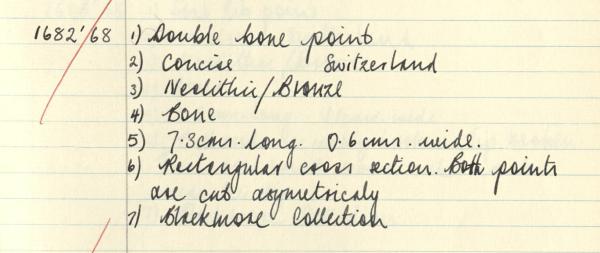 1682'68 1) Double bone point
2) Concise Switzerland
3) Neolithic/Bronze
4) Bone
5) 7.3cms. long. 0.6cms. wide.
6) Rectangular cross section. Both points
are cut asymetricaly
7) Blackmore Collection